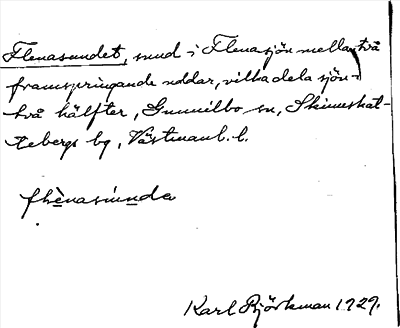 Flenasundet, sund i Flenasjön mellan två
framspringande uddar, vilka dela sjön i
två hälfter, Gunnilbo sn, Skinnskat-
tebergs bg, Västmanl. l.
flènasúnda
Karl Björkman 1929.